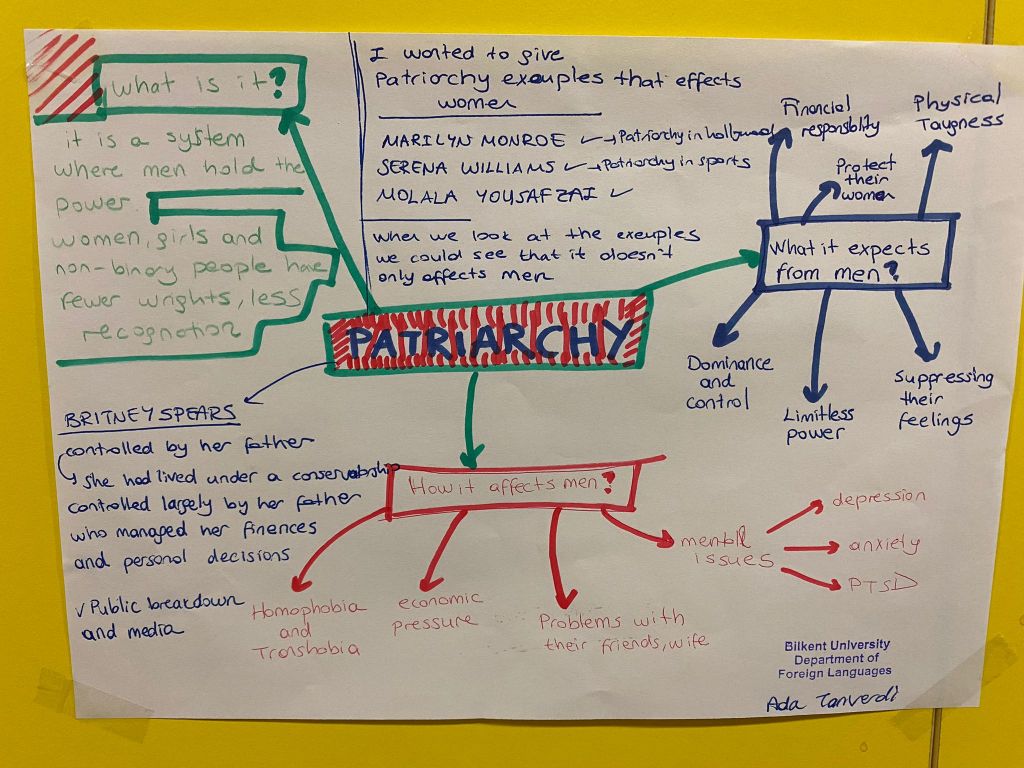 what is it?
it is a system
where men hold the
power.
women, girls and
non-binary people have
fewer wrights, less
recognotion
I wonted to give
Patriarchy exeuples that effects
women
MARILYN MONROE → Patriarchy in hollywood
SERENA WILLIAMS → Patriarchy in sports
MOLALA YOUSAFZAI
when we look at the exeuples
we could see that it doesn't
only affects men
Financial
responsblity
Physical
Taugness
Protect
their
women
What it expects
from men?
Dominance
and
control
Limitless
power
Suppressing
their
feelings
PATRIARCHY
BRITNEY SPEARS
controlled by her father
she had lived under a conservatorship
controlled largely by her father
who managed her finences
and personal decisions
√ Public breakdown
and media
How it affects men?
Homophobia
and
Tronshobia
economic
pressure
Problems with
their friends, wife
mental
issues
depression
anxiety
PTSD
Bilkent University
Department of
Foreign Languages
Ada Tanverdi